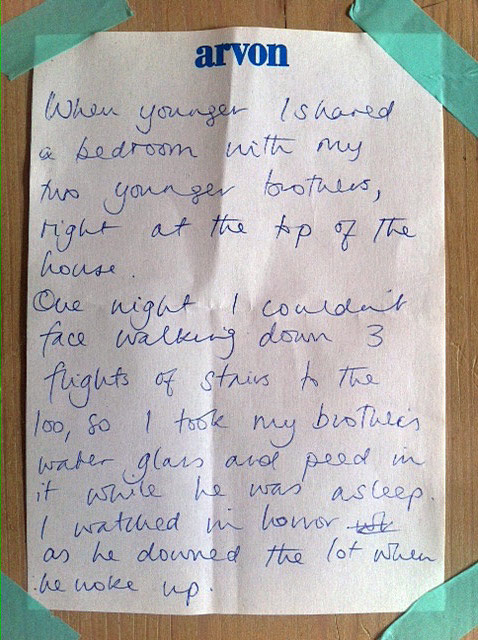 arvon
When younger I shared
a bedroom with my
two younger brothers,
right at the top of the
house.
One night I couldn't
face walking down 3
flights of stairs to the
loo, so I took my brother's
water glass and peed in
it while he was asleep.
I watched in horror
as he downed the lot when
he woke up.